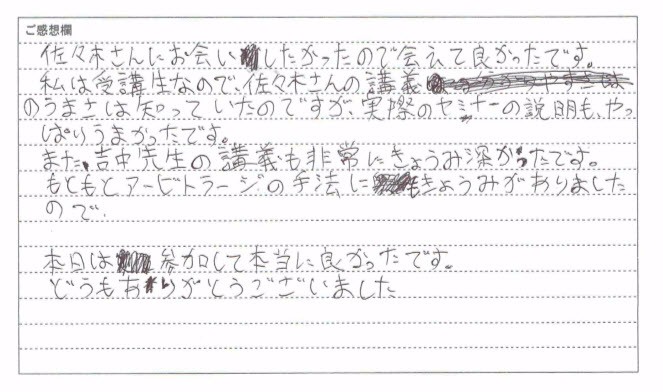 ご感想欄
佐々木さんにお会いしたかったので会えて良かったです。
私は受講生なので、佐々木さんの講義
のうまさは知っていたのですが、実際のセミナーの説明も、やっ
ぱりうまかったです。
また、吉中先生の講義も非常にきょうみ深かったです。
もともとアービトラージの手法にきょうみがありました
ので、
本日は参加して本当に良かったです。
どうもありがとうございました